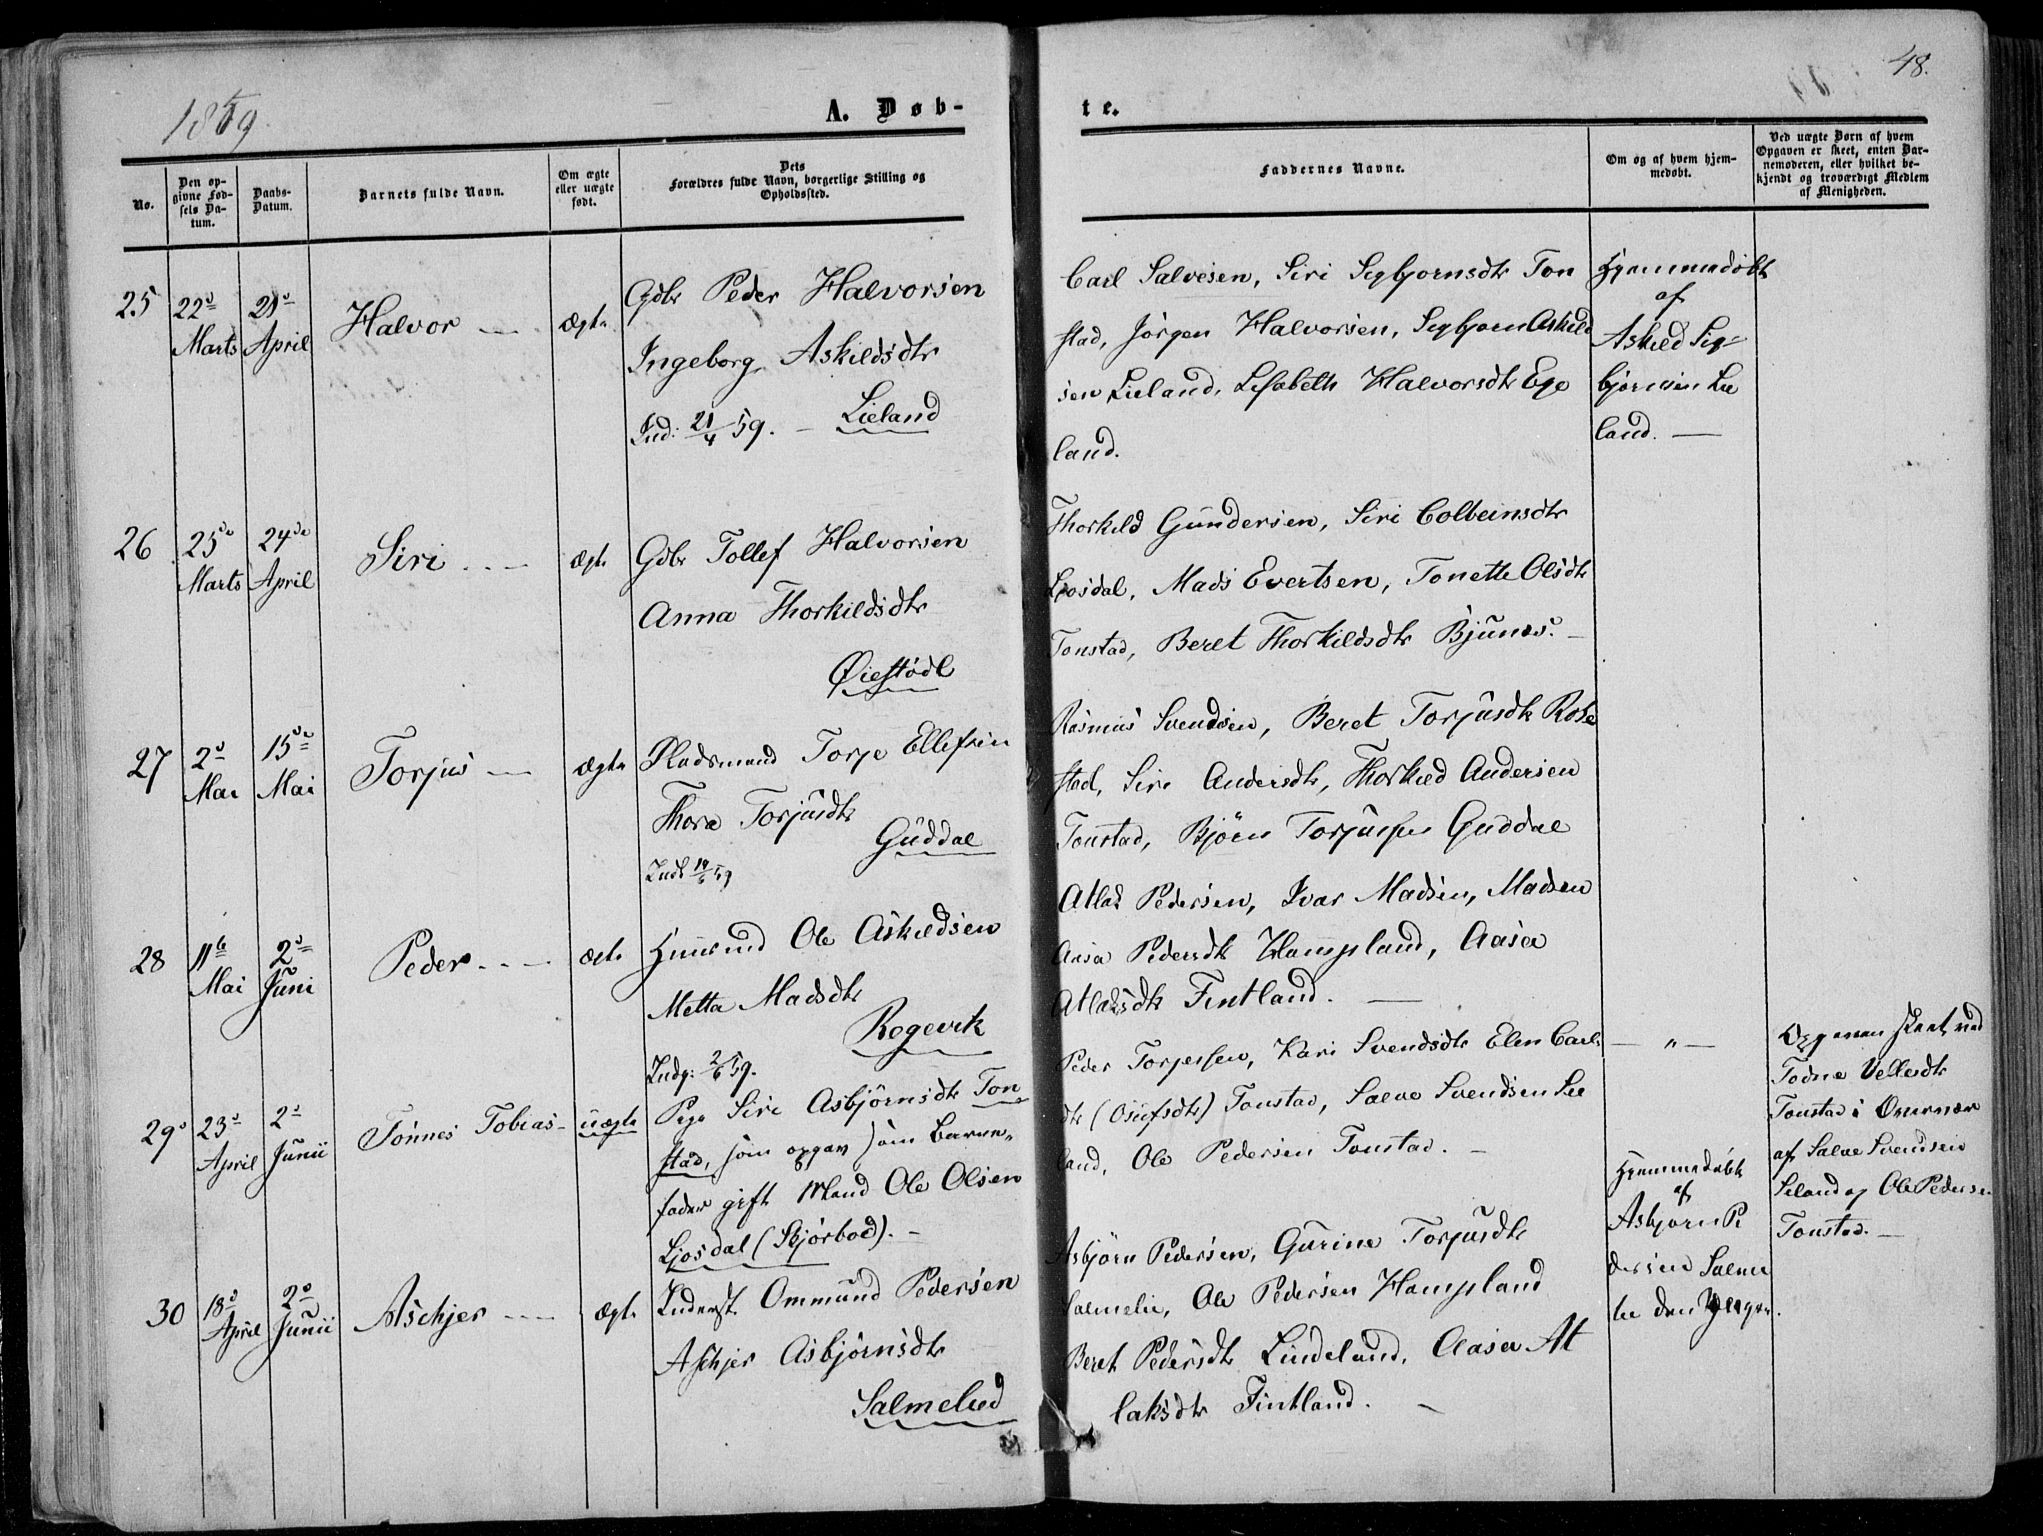 1859.
A. Døb-
te.
48.
No.
Den op-
givne Fød-
sels Da-
tum.
Daabs-
Datum.
Barnets fulde Navn.
Om ægte
eller uægte
født.
Dets
Forældres fulde Navn, borgerlige Stilling og
Opholdssted.
Faddernes Navne.
Om og af hvem hjem-
medøbt.
Ved uægte Børn af hvem
Opgaven er skeet, enten Bar-
nemoderen, eller hvilket be-
kjendt og troværdigt Medlem
af Menigheden.
25
22de
Marts
21de
April
Halvor
ægte
Gdbr Peder Halvorsen
Ingeborg Askildsdtr
Ind: 21/4 59. - Lieland
Carl Salvesen, Siri Sigbjornsdtr Ton
stad, Jørgen Halvorsen, Sigbjorn Askild
sen Lieland, Lisabeth Halvorsdtr Ege
land.
Hjemmedøbt
af
Askild Sig-
bjornsen Lie
land.
26
25de
Marts
24de
April
Siri
ægte
Gdbr Tollef Halvorsen
Anna Thorkildsdtr
Øiestødl
Thorkild Gundersen, Siri Colbeinsdtr
Liosdal, Mads Evertsen, Tonette Olsdtr
Tonstad, Beret Thorkildsdtr Bjunes.
27
2de
Mai
15de
Mai
Torjus
ægte
Pladsmand Torje Ellefsen
Thora Torjusdtr
Guddal
Rasmus Svendsen, Beret Torjusdtr Rose
stad, Siri Andersdtr, Thorkild Andersen
Tonstad, Bjørn Torjussen Guddal
28
11te
Mai
2de
Juni
Peder
ægte
Huusmd Ole Askildsen
Metta Madsdtr
Rogevik
Indg: 2/6 59.
Atlak Pedersen, Ivar Madsen, Madsen
Aasa Pedersdtr Hompland, Aasa
Atlaksdtr Fintland.
29
23de
April
2de
Junii
Tönnes Tobias
uægte
Pige Siri Asbjörnsdtr Ton
stad, som opgav som Barne-
fader gift Mand Ole Olsen
Ljosdal (Skjorbod).
Peder Torjersen, Kari Svendsdtr Elen Carls
dtr (Osufsdtr) Tonstad, Salve Svendsen Se
land, Ole Pedersen Tonstad.
— „ —
Opgaven skeet ved
Todne Vellesdtr
Tonstad i Overvær
af Salve Svendsen
Seland og Ole Pedersen
Tonstad.
30
18de
April
2de
Junii
Aschjer
ægte
Inderst Ommund Pedersen
Aschjer Asbjörnsdtr
Salmelied
Asbjörn Pedersen, Gurine Torjusdtr
Salmelie, Ole Pedersen Hompland
Beret Pedersdtr Lindeland, Aasa At
laksdtr Fintland.
Hjemmedøbt
af
Asbjørn Pe
dersen Salme
lie